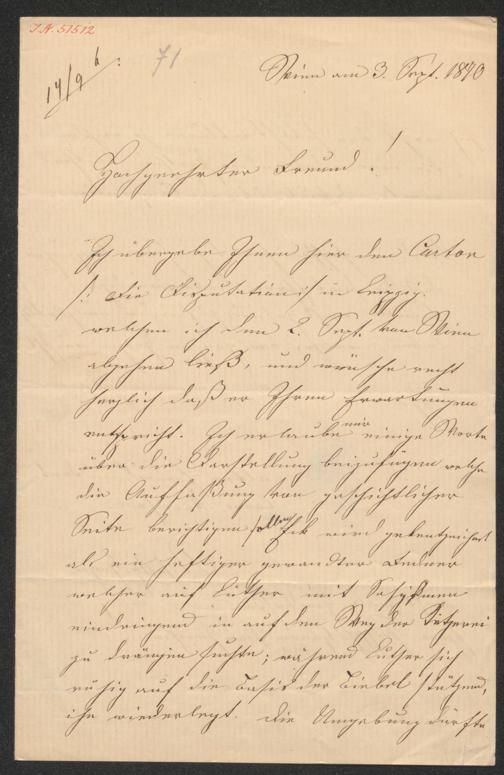 I.N. 51512
14/9 b:
71
Wien am 3. Sept. 1870
Hochgeehrter Freund!
Ich übergebe Ihnen hier den Carton
/: Die Disputation :/ in Leipzig.
welchen ich den 2. Sept. von Wien
abgehen ließ, und wünsche recht
herzlich daß er Ihren Erwartungen
entspricht. Ich erlaube mir einige Worte
über die Darstellung beizufügen welche
die Auffaßung von geschichtlicher
Seite berichtigen sollen Eck wird gekennzeichnet
als ein heftiger gewandter Redner
welcher auf Luther mit
eindringend in auf den Weg der Ketzerei
zu drängen suchte; während Luther sich
ruhig auf die Basis der Biebel stützend,
ihn wiederlegt. Die Umgebung dürfte